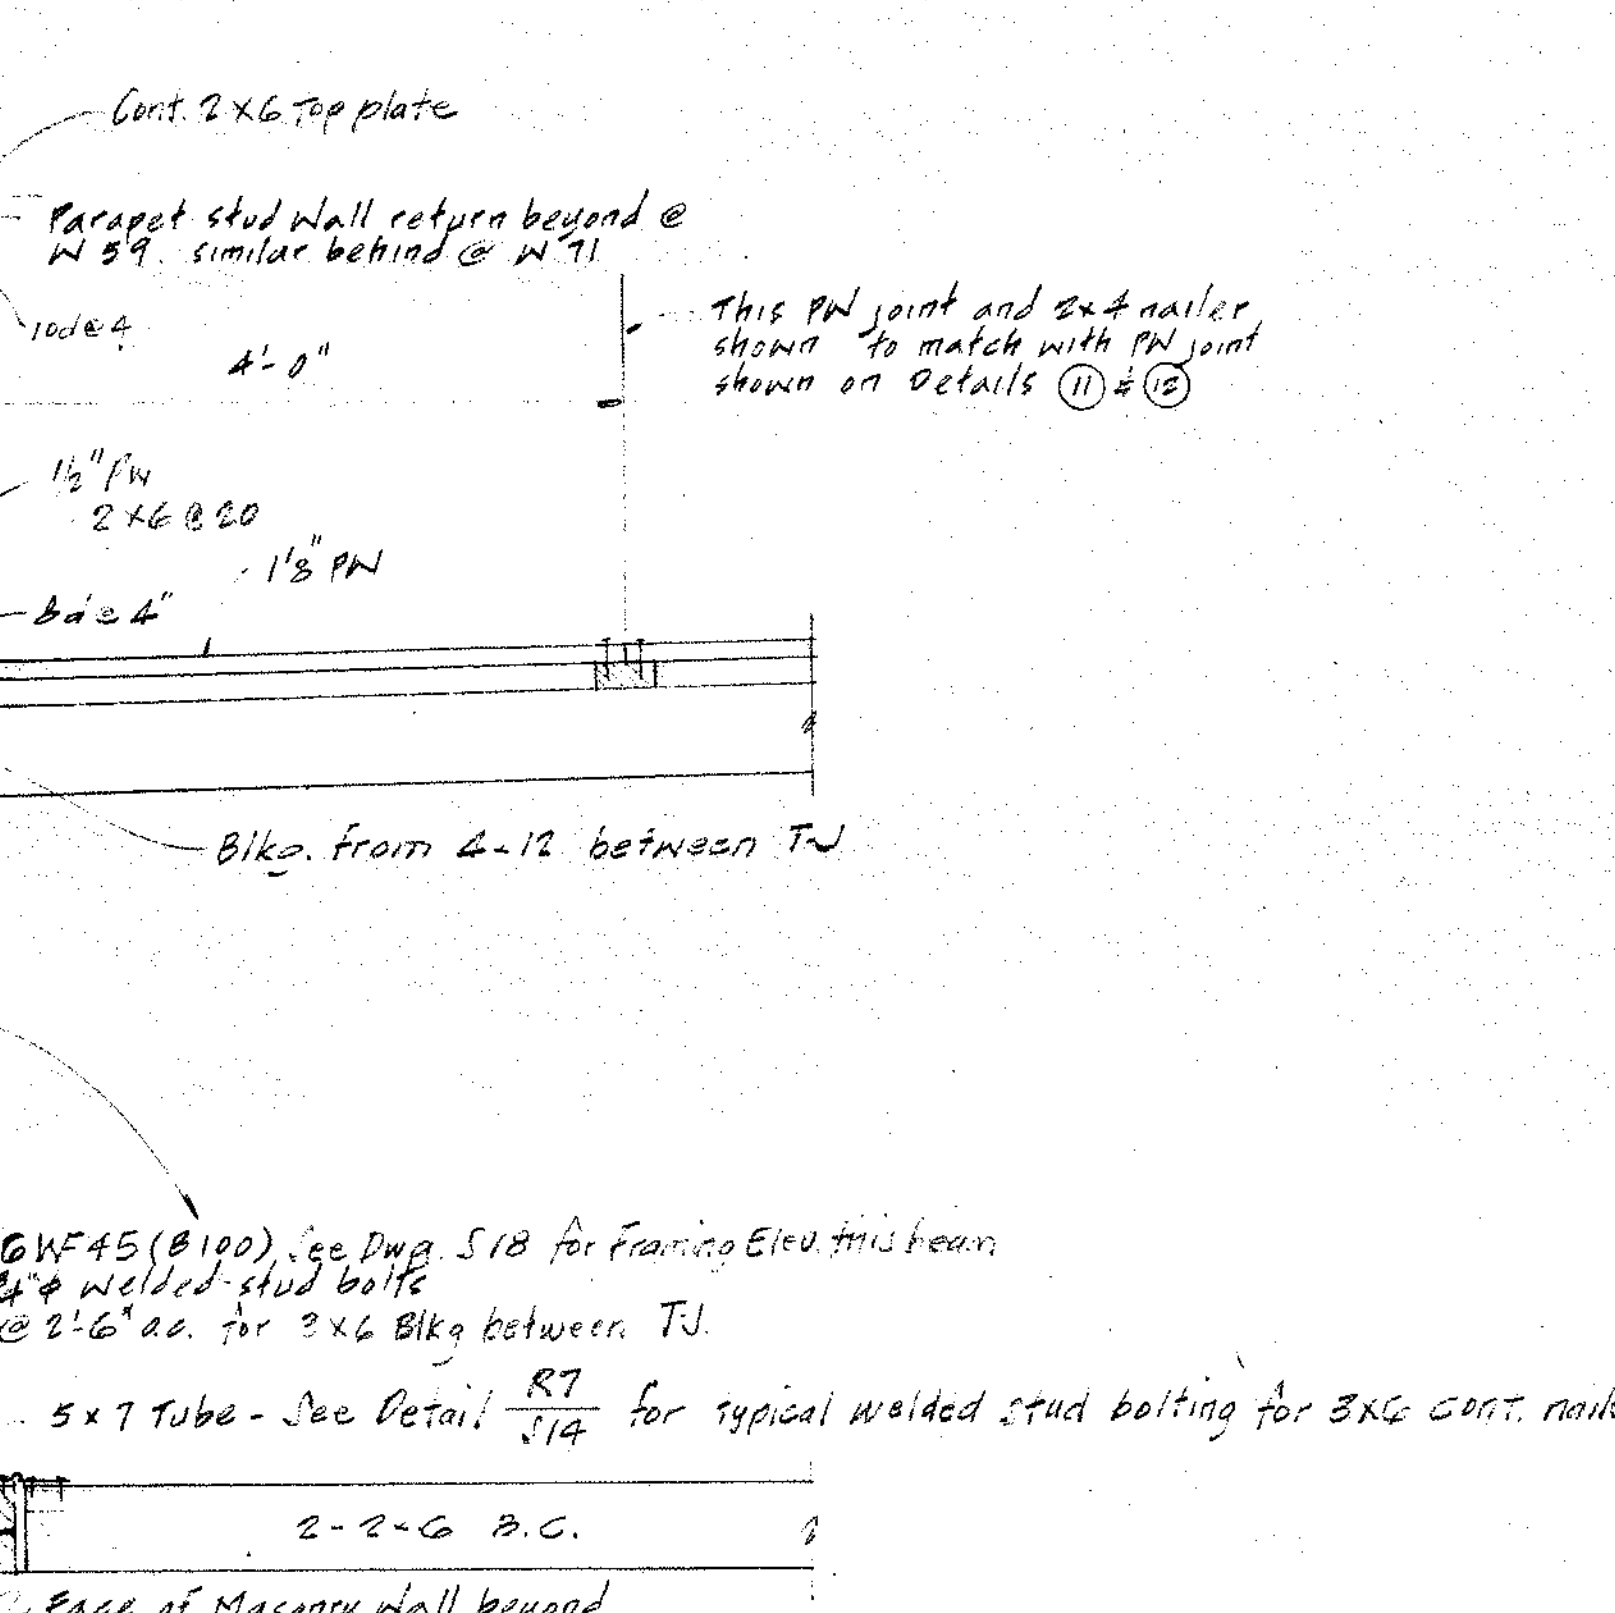 Cont. 2x6 Top plate
Parapet stud wall return beyond @
W 59. similar behind @ W 71
10d@4
4'-0"
This PW joint and 2x4 nailer
shown to match with PW joint
shown on Details 11 & 12
1½" PW
2x6 @ 20
1⅛" PW
8d@4"
Blkg. from 4-12 between TJ
WF45 (B100) See Dwg. S18 for Framing Elev. this beam
welded stud bolts
@ 2'-6" o.c. for 3x6 Blkg between TJ.
5x7 Tube - See Detail R7/S14 for typical welded stud bolting for 3x6 cont.
2-2x6 B.C.
Face of Masonry Wall beyond